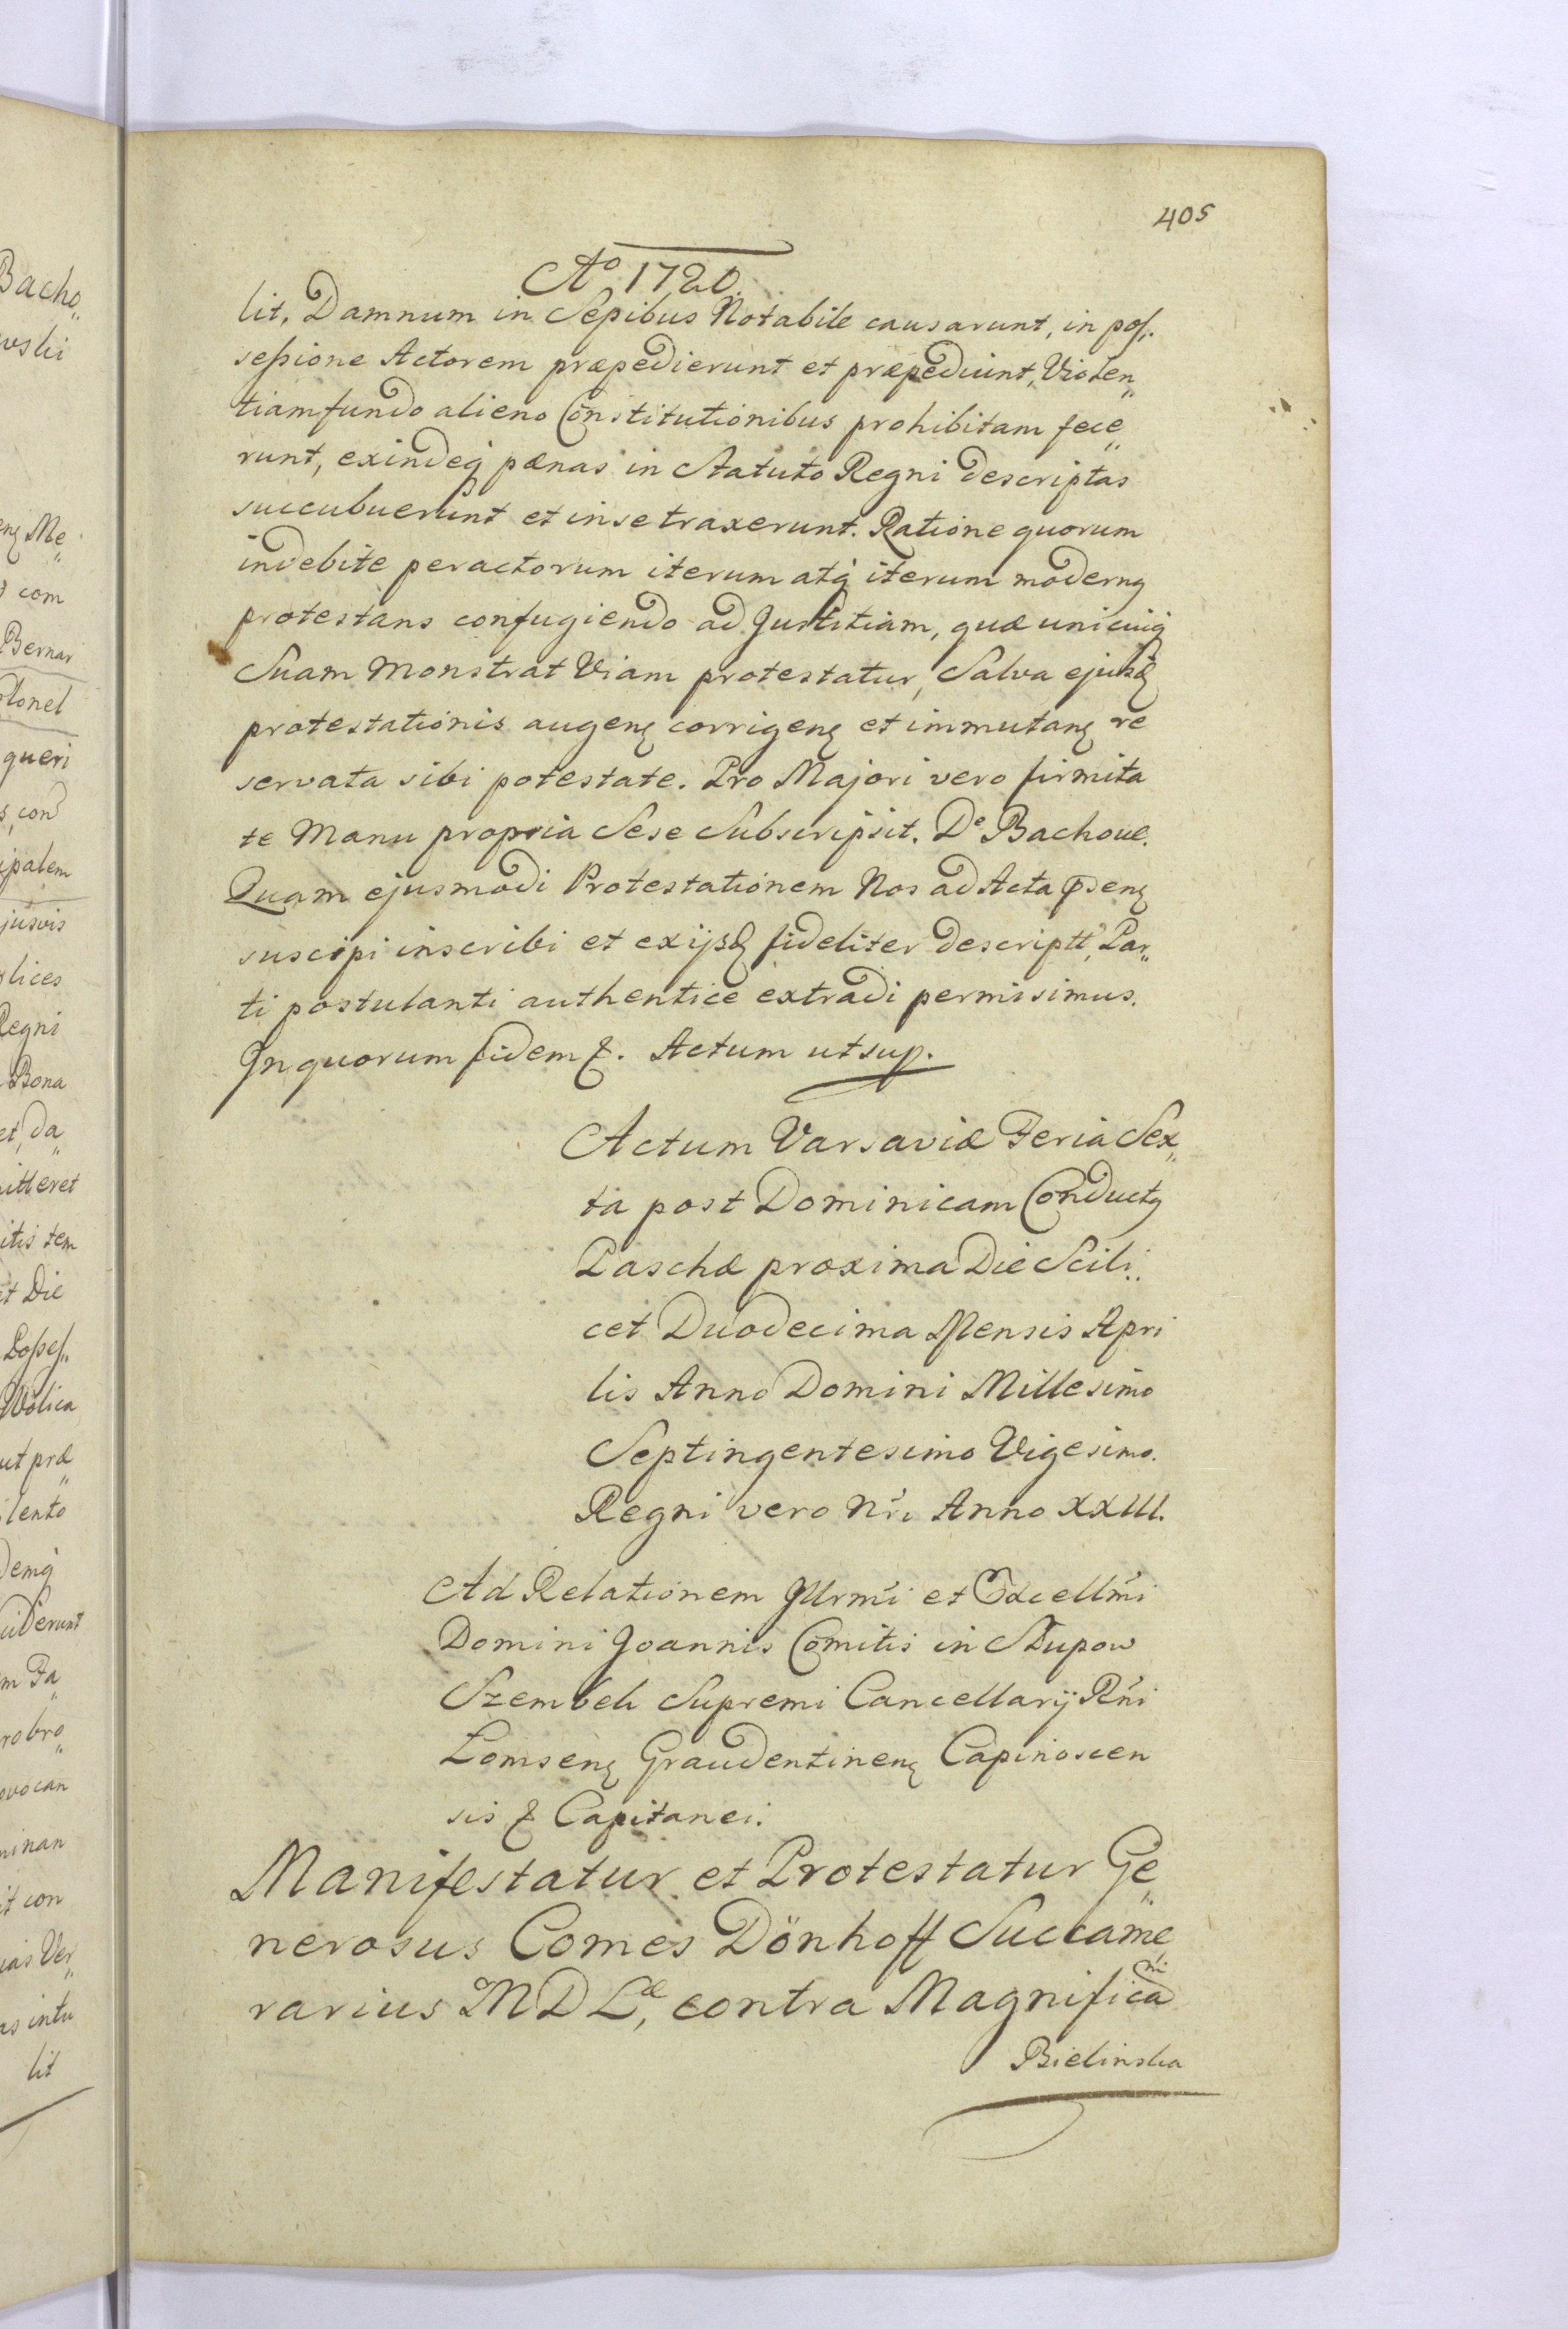 405
Aº 1720.
lit, Damnum in Sepibus Notabile causarunt, in pos„
sessione Actorem præpedierunt et præpediunt, Violen„
tiam fundo alieno Constitutionibus prohibitam fece„
runt, exindeq; pœnas in Statuto Regni descriptas
succubuerunt et in se traxerunt. Ratione quorum
indebite peractorum iterum atq; iterum modernꝯ
protestans confugiendo ad Justitiam, quæ unicuiq;
Suam Monstrat Viam protestatur, Salva ejusd
protestationis augenꝭ corrigenꝭ et immutanꝭ re
servata sibi potestate. Pro Majori vero firmita
te Manu propria Sese Subscripsit. De Bachoue.
Quam ejusmodi Protestationem Nos ad Acta p̄senꝭ
suscipi inscribi et ex ijsd fideliter descriptt, Par„
ti postulanti authentice extradi permisimus.
In quorum fidem &. Actum ut sup.
Actum Varsaviæ Feria Sex„
ta post Dominicam Conductꝯ
Paschæ proxima Die Scili„
cet Duodecima Mensis Apri
lis Anno Domini Millesimo
Septingentesimo Vigesimo.
Regni vero Nri Anno XXIII.
Ad Relationem Illrmi et Excellmi
Domini Joannis Comitis in Słupow
Szembek Supremi Cancellarij Rni
Lomsenꝭ Graudentinenꝭ Capinoscen
sis & Capitanei.
Manifestatur et Protestatur Ge„
nerosus Comes Dönhoff Succame„
rarius M D Læ, contra Magnificam
Bielinska
Bacho„
wski
enꝭ Me„
com
Bernar
lonel
queri
s, cond
ipalem
jusvis
lices
Regni
Bona
et, da„
itteret
itis tem
et Die
Posses„
Wolica
ut præ„
lento
demq;
iderunt
m Fa„
robro„
ovocan
minan
it con
ias Ver„
as intu
lit